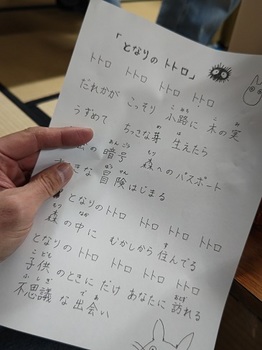 「となりのトトロ」
トトロ トトロ トトロ トトロ
だれかが こっそり 小路に 木の実
うずめて ちっさな芽 生えたら
の 暗号 森へのパスポート
な 冒険はじまる
となりのトトロ トトロ トトロ トトロ
の中に むかしから 住んでる
となりの トトロ トトロ トトロ トトロ
子供のときにだけ あなたに 訪れる
不思議な出会い